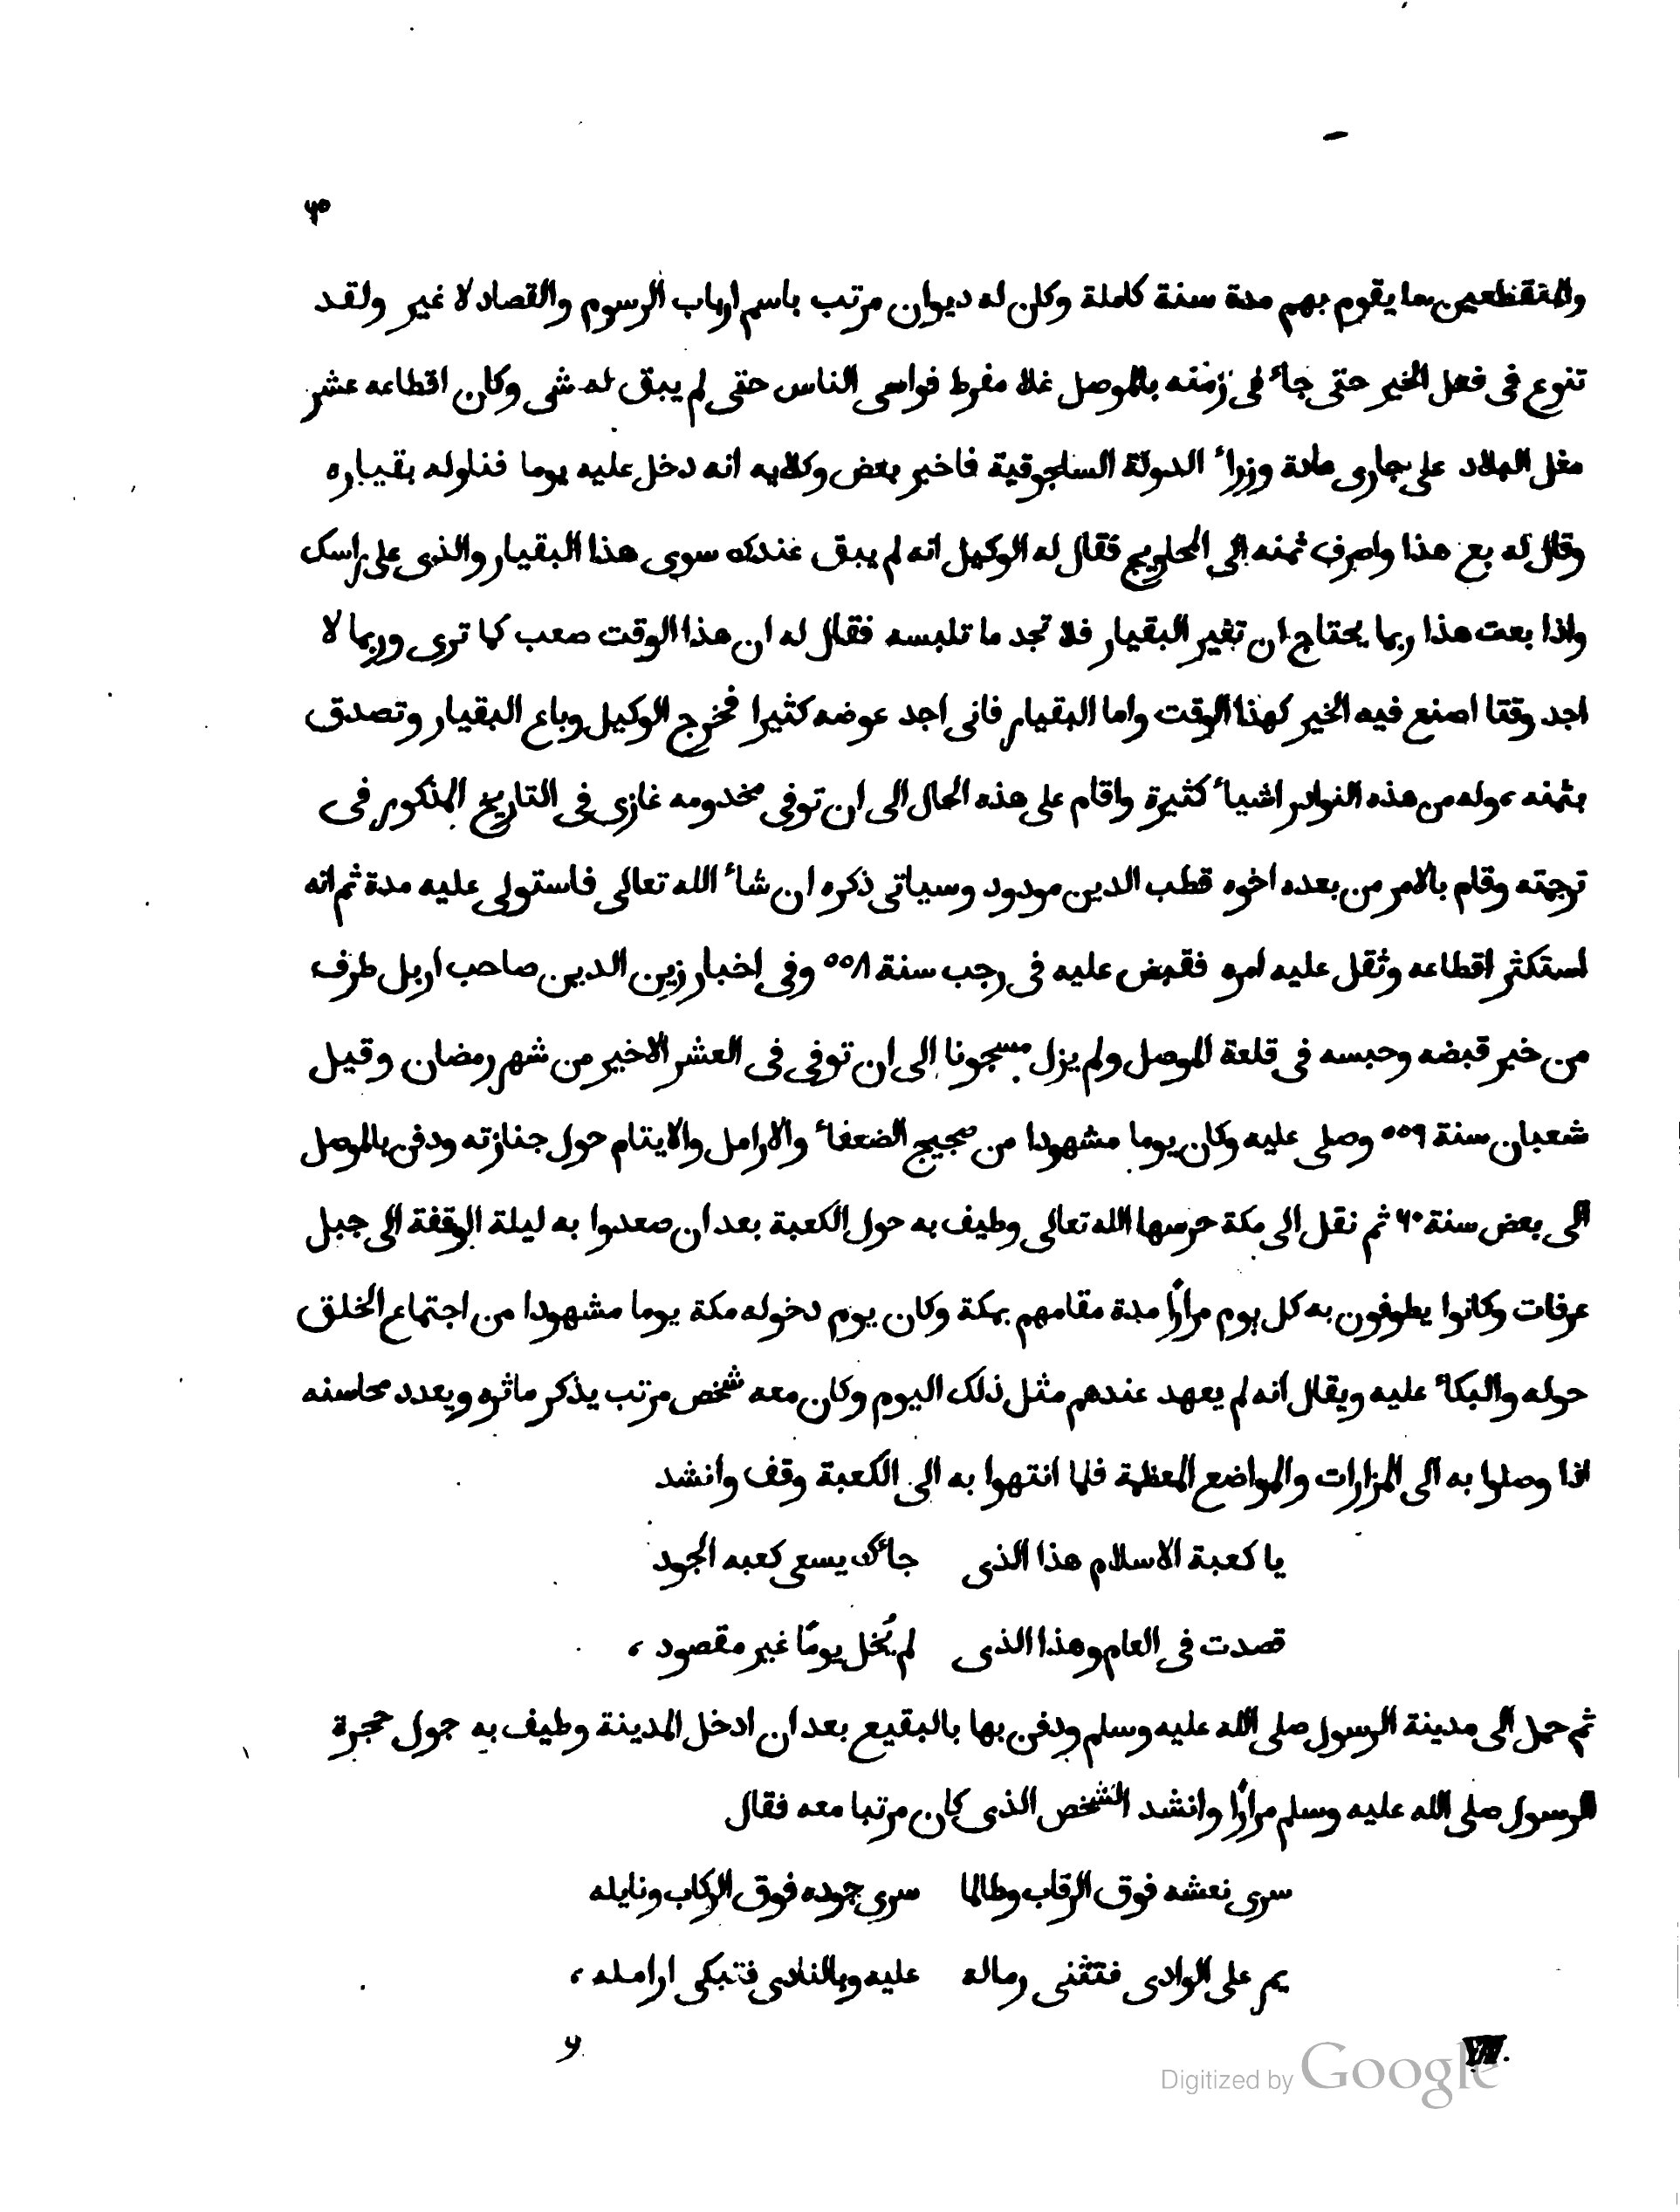 ٦٥
والمنقطعين بما يقوم بهم مدة سنة كاملة وكان له ديوان مرتب باسم ارباب الرسوم والقصاد لا غير ولقد
تنوع فى فعل الخير حتى جاء فى زمنه بالموصل غلا مفرط فواسى الناس حتى لم يبق له شى وكان اقطاعه عشر
مغل البلاد على جارى عادة وزراء الدولة السلجوقية فاخبر بعض وكلايه انه دخل عليه يوما فناوله بقياره
وقال له بع هذا واصرف ثمنه الى المحاويج فقال له الوكيل انه لم يبق عندك سوى هذا البقيار والذى على راسك
واذا بعت هذا ربما يحتاج ان تغير البقيار فلا تجد ما تلبسه فقال له ان هذا الوقت صعب كما ترى وربما لا
اجد وقتا اصنع فيه الخير كهذا الوقت واما البقيار فانى اجد عوضه كثيرا فخرج الوكيل وباع البقيار وتصدق
بثمنه، وله من هذه النوادر اشياء كثيرة واقام على هذه الحال الى ان توفى مخدومه غازى فى التاريخ المذكور فى
ترجمته وقام بالامر من بعده اخوه قطب الدين مودود وسياتى ذكره ان شاء الله تعالى فاستولى عليه مدة ثم انه
استكثر اقطاعه وثقل عليه امره فقبض عليه فى رجب سنة ٥٥٨ وفى اخبار زين الدين صاحب اربل طرف
من خبر قبضه وحبسه فى قلعة الموصل ولم يزل مسجونا الى ان توفى فى العشر الاخير من شهر رمضان وقيل
شعبان سنة ٥٥٩ وصلى عليه وكان يوما مشهودا من ضجيج الضعفاء والارامل والايتام حول جنازته ودفن بالموصل
الى بعض سنة ٦٠ ثم نقل الى مكة حرسها الله تعالى وطيف به حول الكعبة بعد ان صعدوا به ليلة الوقفة الى جبل
عرفات وكانوا يطوفون به كل يوم مرارًا مدة مقامهم بمكة وكان يوم دخوله مكة يوما مشهودا من اجتماع الخلق
حوله والبكاء عليه ويقال انه لم يعهد عندهم مثل ذلك اليوم وكان معه شخص مرتب يذكر ماثره ويعدد محاسنه
اذا وصلوا به الى المزارات والمواضع المعظمة فلما انتهوا به الى الكعبة وقف وانشد
يا كعبة الاسلام هذا الذى جاءك يسعى كعبه الجود
قصدت فى العام وهذا الذى لم يُخل يومًا غير مقصود،
ثم حمل الى مدينة الرسول صلى الله عليه وسلم ودفن بها بالبقيع بعد ان ادخل المدينة وطيف به حول حجرة
الرسول صلى الله عليه وسلم مرارًا وانشد الشخص الذى كان مرتبا معه فقال
سرى نعشه فوق الرقاب وطالما سرى جوده فوق الركاب ونايله
يمر على الوادى فتثنى رماله عليه وبالنادى فتبكى ارامله،
VII. ٩
Digitized by Google